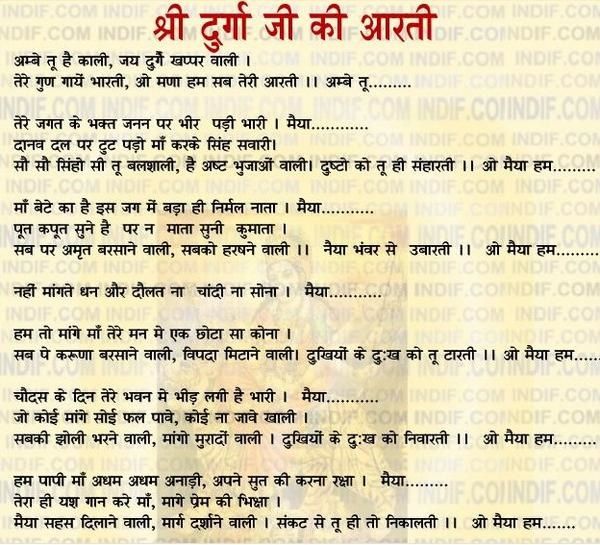 श्री दुर्गा जी की आरती
अम्बे तू है काली, जय दुर्गे खप्पर वाली ।
तेरे गुण गायें भारती, ओ मणा हम सब तेरी आरती ।। अम्बे तू.........
तेरे जगत के भक्त जनन पर भीर पड़ी भारी । मैया............
दानव दल पर टुट पड़ो माँ करके सिंह सवारी।
सौ सौ सिंहो सी तू बलशाली, है अष्ट भुजाओं वाली। दुष्टो को तू ही संहारती ।। ओ मैया हम.........
माँ बेटे का है इस जग में बड़ा ही निर्मल नाता । मैया...........
पूत कपूत सुने है पर न माता सुनी कुमाता ।
सब पर अमृत बरसाने वाली, सबको हरषने वाली ।। नैया भंवर से उबारती ।। ओ मैया हम.........
नहीं मांगते धन और दौलत ना चांदी ना सोना । मैया...........
हम तो मांगे माँ तेरे मन मे एक छोटा सा कोना ।
सब पे करूणा बरसाने वाली, विपदा मिटाने वाली। दुखियों के दु:ख को तू टारती ।। ओ मैया हम......
चौदस के दिन तेरे भवन मे भीड़ लगी है भारी । मैया...........
जो कोई मांगे सोई फल पावे, कोई ना जावे खाली ।
सबकी झोली भरने वाली, मांगो मुरादों वाली । दुखियों के दु:ख को निवारती ।। ओ मैया हम.........
हम पापी माँ अधम अधम अनाड़ी, अपने सुत की करना रक्षा । मैया.........
तेरा ही यश गान करे माँ, मागे प्रेम की भिक्षा ।
मैया सहस दिलाने वाली, मार्ग दर्शाने वाली । संकट से तू ही तो निकालती ।। ओ मैया हम.......
INDIF.COM